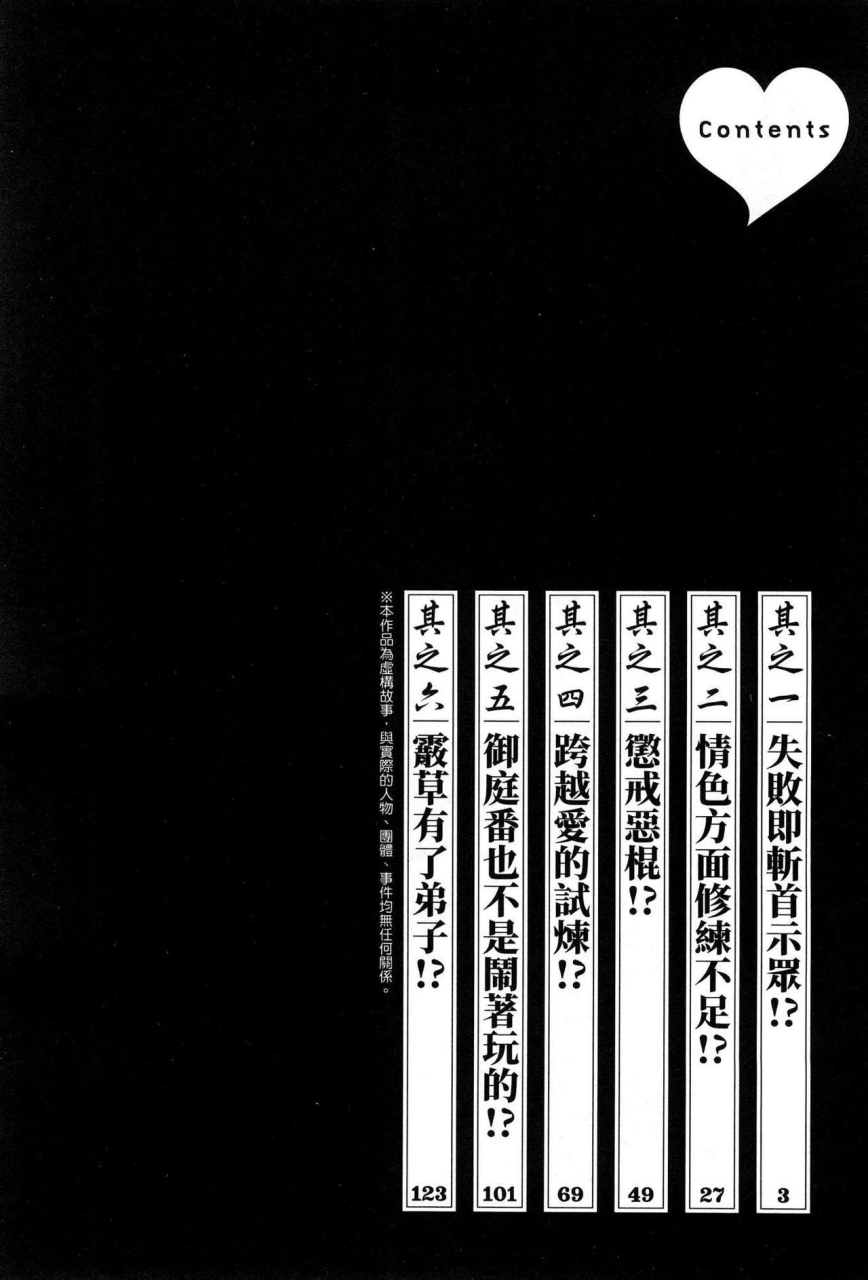 Contents
其之一 失敗即斬首示眾!? 3
其之二 情色方面修練不足!? 27
其之三 懲戒惡棍!? 49
其之四 跨越愛的試煉!? 69
其之五 御庭番也不是鬧著玩的!? 101
其之六 霰草有了弟子!? 123
※本作品為虛構故事，與實際的人物、團體、事件均無任何關係。